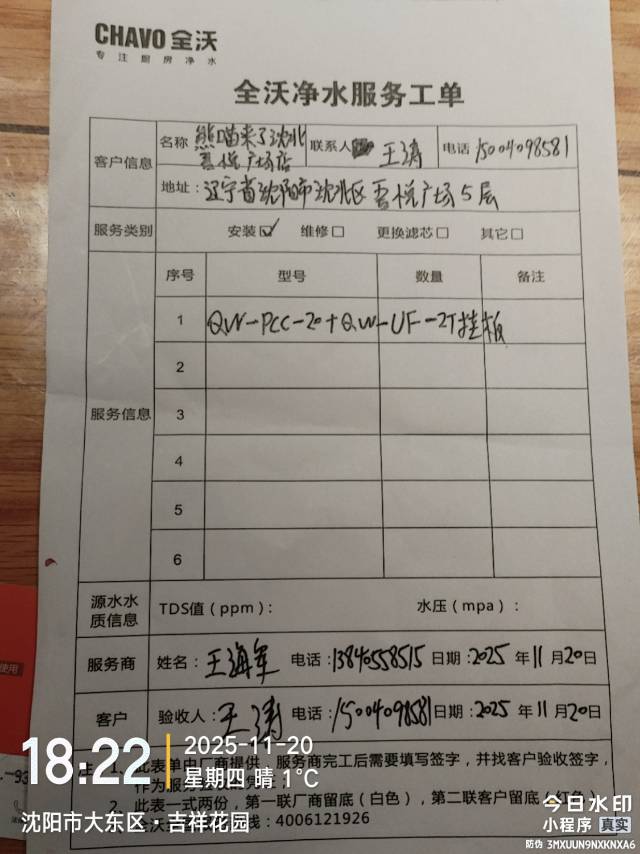 CHAVO 全沃
专注厨房净水
全沃净水服务工单
客户信息
名称 熊喵来了沈北吾悦广场店 联系人 王涛 电话 15004098581
地址：辽宁省沈阳市沈北区吾悦广场5层
服务类别 安装☑ 维修☐ 更换滤芯☐ 其它☐
服务信息
序号 型号 数量 备注
1 QW-PCC-20+QW-UF-2T挂板
2
3
4
5
6
源水水质信息 TDS值（ppm）： 水压（mpa）：
服务商 姓名：王海军 电话：13840558515 日期：2025年11月20日
客户 验收人：王涛 电话：15004098581 日期：2025年11月20日
注 1、此表单由厂商提供，服务商完工后需要填写签字，并找客户验收签字，
作为服务
2、此表一式两份，第一联厂商留底（白色），第二联客户留底（红色）
全沃 线：4006121926
18:22
2025-11-20
星期四 晴 1°C
沈阳市大东区·吉祥花园
今日水印
小程序 真实
防伪 3MXUUN9NXKNXA6
使用